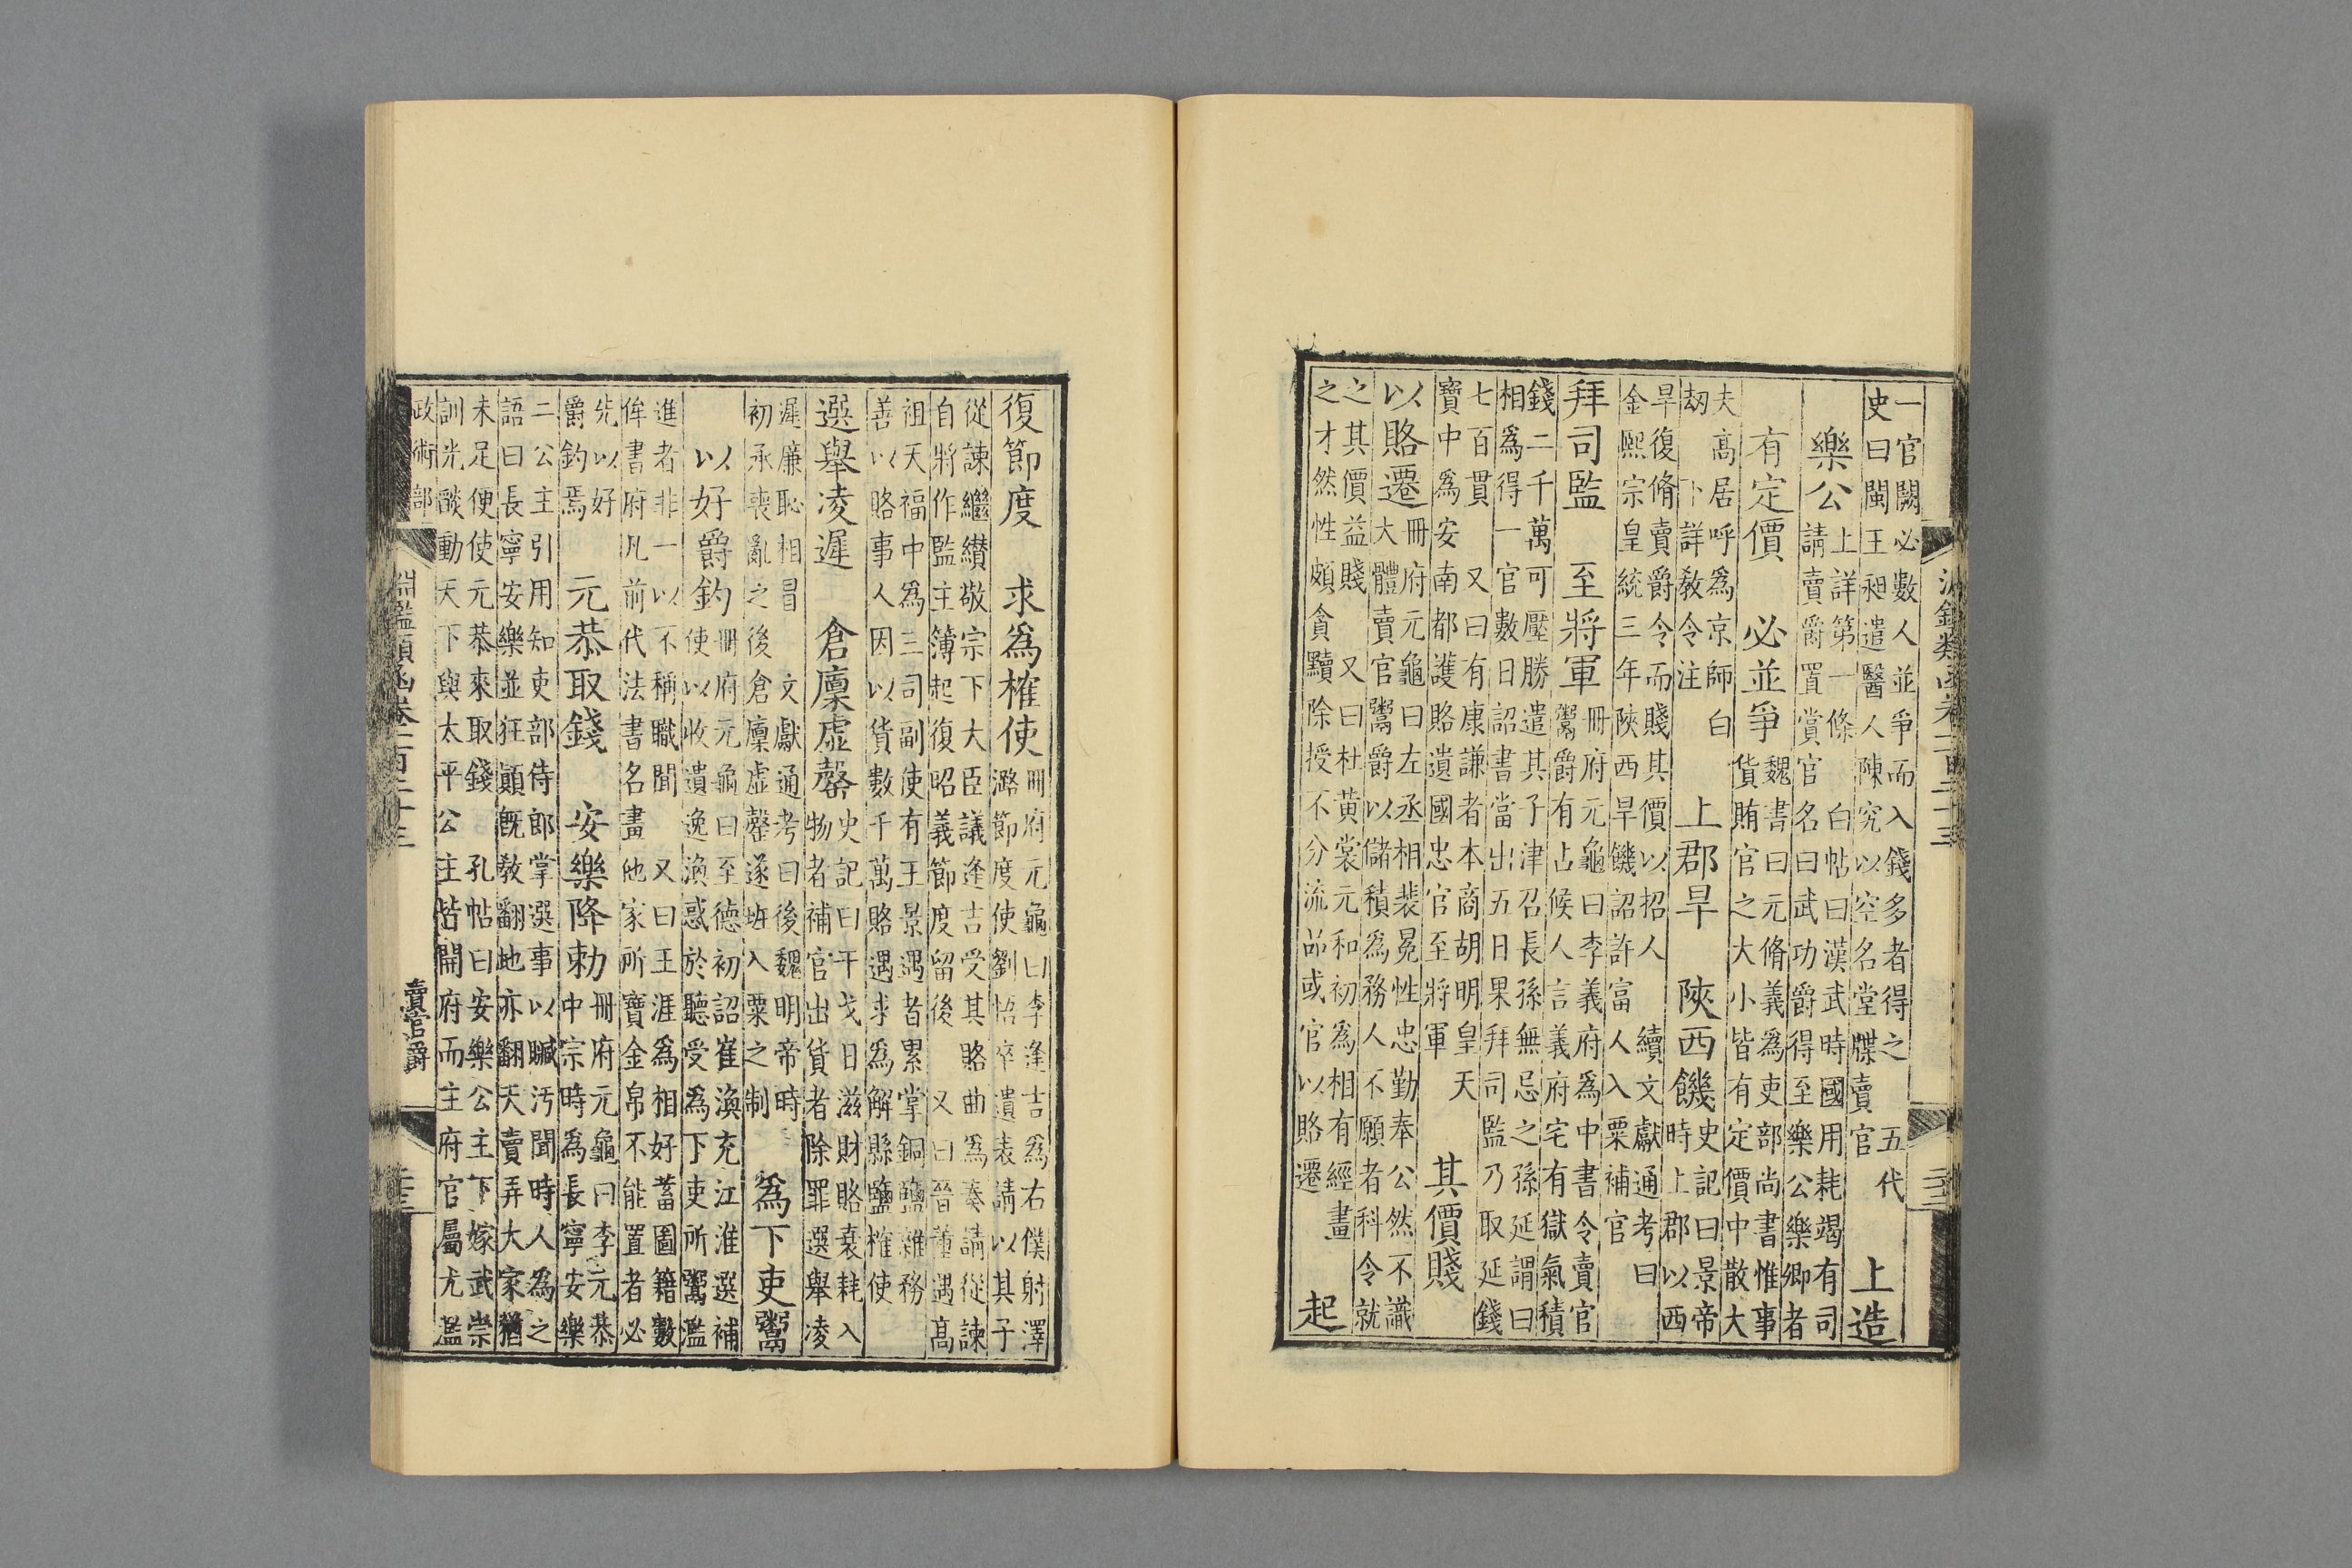 一官闕必數人並爭而入錢多者得之 五代
史曰閩王昶遣醫人陳究以空名堂牒賣官 上造
樂公 上詳第一條 白帖曰漢武時國用耗竭有司
請賣爵置賞官名曰武功爵得至樂公樂卿者
有定價 必並爭 魏書曰元脩義為吏部尚書惟事
貨賄官之大小皆有定價中散大
夫高居呼為京師白
劫 下詳敎令注 上郡旱 陝西饑 史記曰景帝
時上郡以西
旱復脩賣爵令而賤其價以招人 續文獻通考曰
金熙宗皇統三年陝西旱饑詔許富人入粟補官
拜司監 至將軍 冊府元龜曰李義府為中書令賣官
鬻爵有占候人言義府宅有獄氣積
錢二千萬可壓勝遣其子津召長孫無忌之孫延謂曰
相為得一官數日詔書當出五日果拜司監乃取延錢
七百貫 又曰有康謙者本商胡明皇天
寶中為安南都護賂遺國忠官至將軍 其價賤
以賂遷 冊府元龜曰左丞相裴冕性忠勤奉公然不識
大體賣官鬻爵以儲積為務人不願者科令就
之其價益賤 又曰杜黃裳元和初為相有經畫
之才然性頗貪黷除授不分流品或官以賂遷 起
復節度 求為榷使 冊府元龜曰李逢吉為右僕射澤
潞節度使劉悟卒遺表請以其子
從諫繼纘敬宗下大臣議逢吉受其賂曲為奏請從諫
自將作監主簿起復昭義節度留後 又曰晉董遇高
祖天福中為三司副使有王景遇者累掌銅鹽雜務
善以賂事人因以貨數千萬賂遇求為解縣鹽榷使
選舉凌遲 倉廩虛罄 史記曰干戈日滋財賂衰耗入
物者補官出貨者除罪選舉凌
遲廉恥相冒 文獻通考曰後魏明帝時
初承喪亂之後倉廩虛罄遂班入粟之制 為下吏鬻
以好爵釣 冊府元龜曰至德初詔崔渙充江淮選補
使以收遺逸渙惑於聽受為下吏所鬻濫
進者非一以不稱職聞 又曰王涯為相好蓄圖籍數
侔書府凡前代法書名畫他家所寶金帛不能置者必
先以好
爵釣焉 元恭取錢 安樂降勅 冊府元龜曰李元恭
中宗時為長寧安樂
二公主引用知吏部侍郎掌選事以贓汚聞時人為之
語曰長寧安樂並狂顚旣敎翻地亦翻天賣弄大家猶
未足便使元恭來取錢 孔帖曰安樂公主下嫁武崇
訓光酸動天下與太平公主皆開府而主府官屬尤濫
政術部 淵鑑類函卷一百二十三 賣官爵